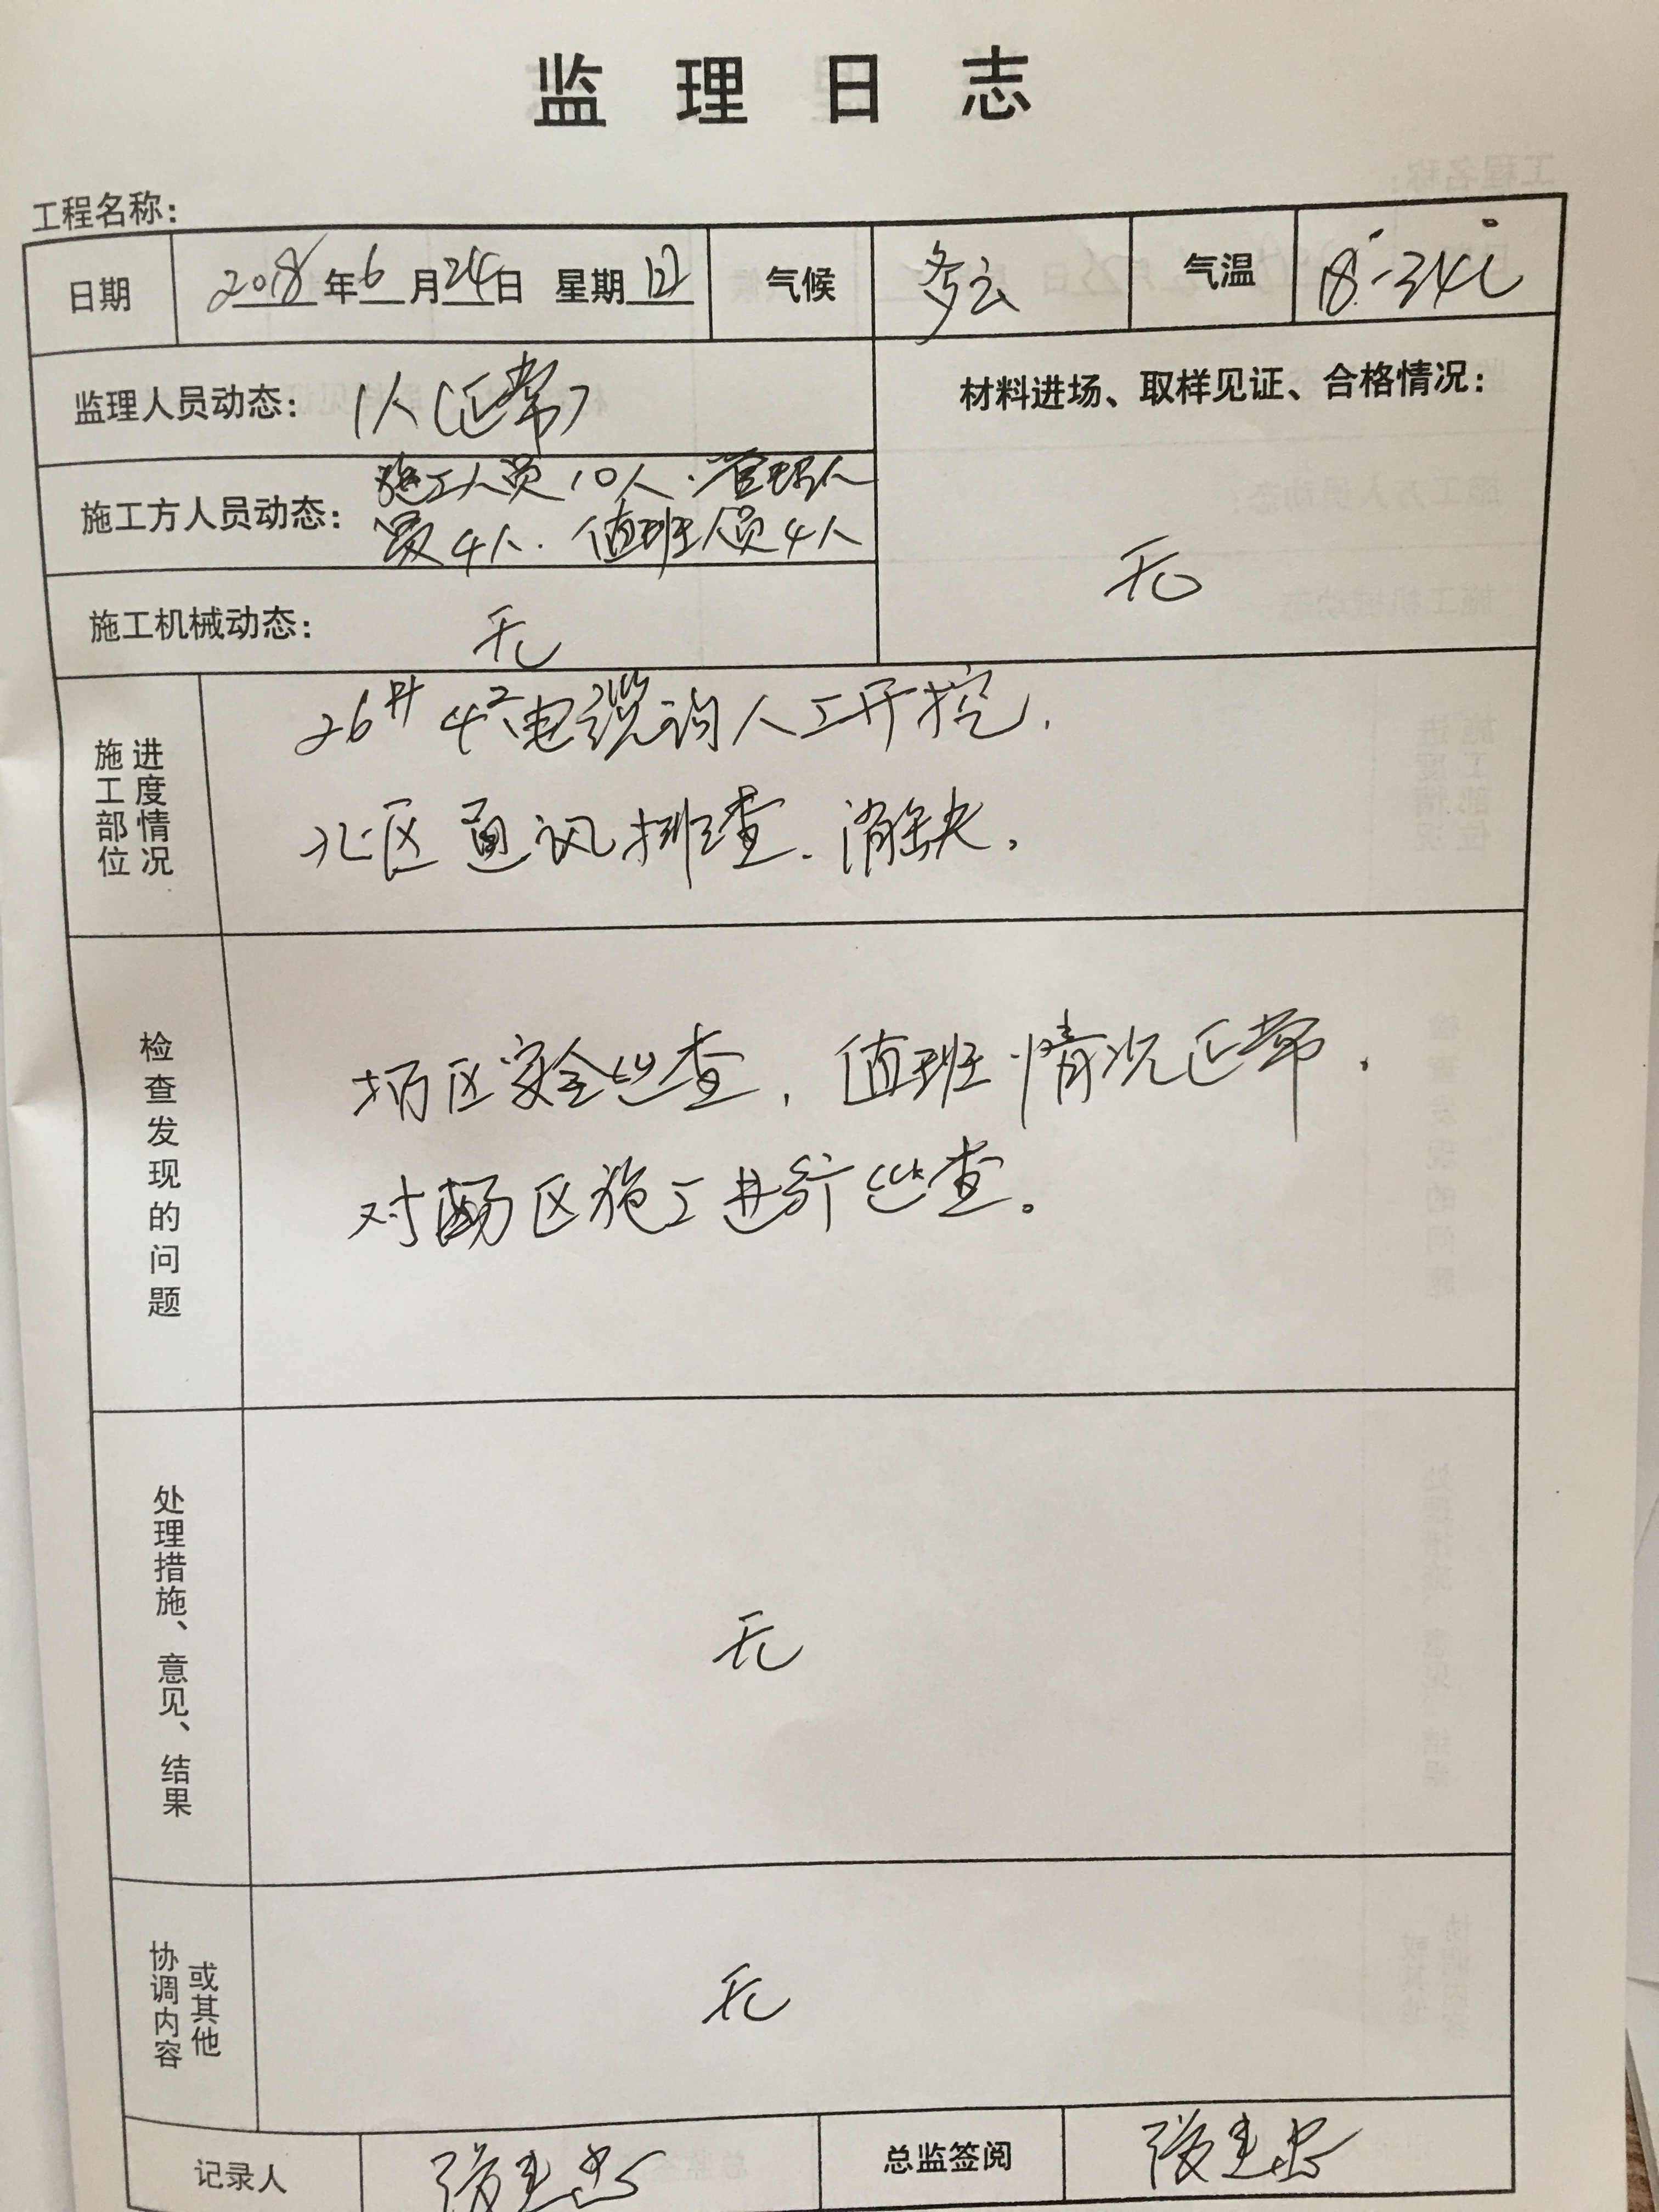 监理日志
工程名称：
日期 2018年6月24日 星期日 气候 多云 气温 18°-34℃
监理人员动态： 1人（正常）
材料进场、取样见证、合格情况：
无
施工方人员动态： 施工人员10人.管理人
员4人.值班人员4人
施工机械动态： 无
施工部位
进度情况
26# 电缆沟人工开挖.
北区通讯排查.消缺.
检查发现的问题
区安全巡查,值班情况正常.
对 区施工进行巡查。
处理措施、意见、结果
无
协调内容
或其他
无
记录人 总监签阅